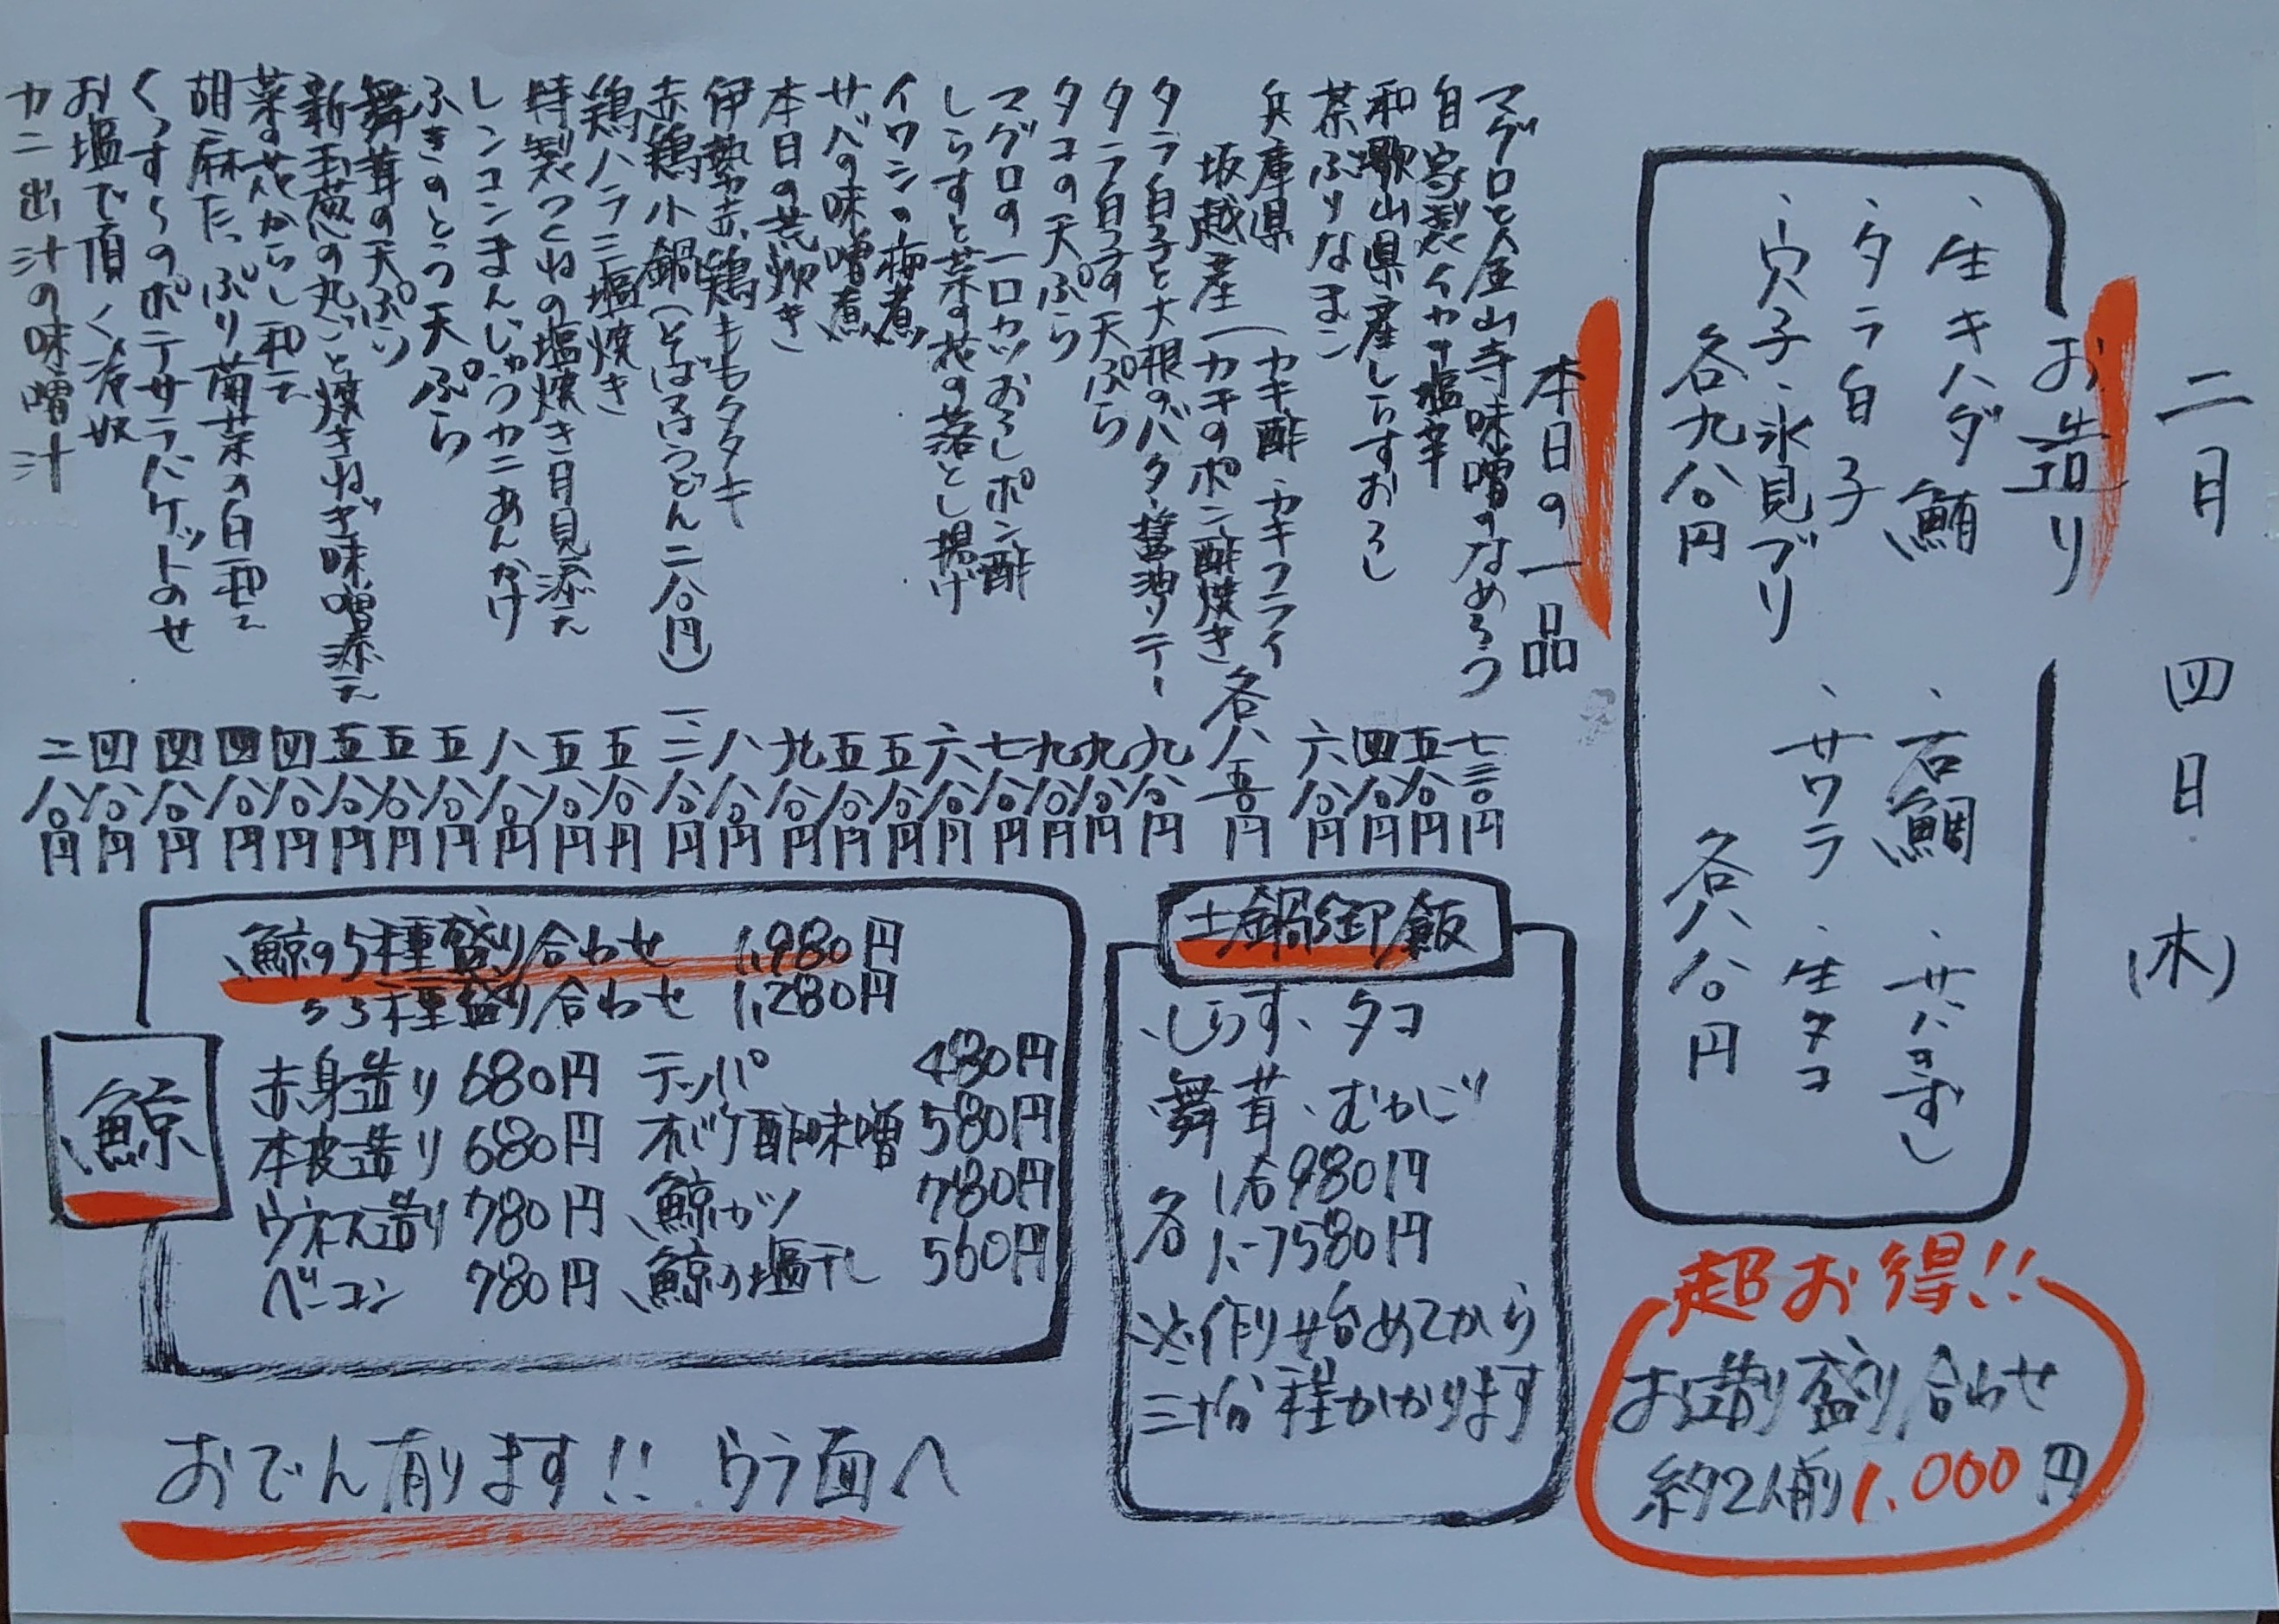 二月 四日 (木)
お造り
、生キハダ鮪 、石鯛 、サバきずし
、タラ白子 、サワラ 、生タコ
、穴子 、氷見ブリ
各九八〇円 各八八〇円
本日の一品
マグロと金山寺味噌のなめろう 七三〇円
自家製イカの塩辛 五八〇円
和歌山県産しらすおろし 四八〇円
茶ぶりなまこ 六八〇円
兵庫県坂越産(カキ酢、カキフライ
カキのポン酢焼き 各八五〇円
タラ白子と大根のバター醤油ソテー 九八〇円
タラ白子の天ぷら 九八〇円
タコの天ぷら 九八〇円
マグロの一口カツおろしポン酢 七八〇円
しらすと菜の花の落とし揚げ 六八〇円
イワシの梅煮 五八〇円
サバの味噌煮 五八〇円
本日の荒炊き 九八〇円
伊勢赤鶏ももタタキ 八八〇円
赤鶏小鍋(そば又はうどん二八〇円) 一、二八〇円
鶏ハラミ塩焼き 五八〇円
特製つくねの塩焼き月見添え 五八〇円
レンコンまんじゅうカニあんかけ 八八〇円
ふきのとう天ぷら 五八〇円
舞茸の天ぷら 五八〇円
新玉葱の丸ごと焼きねぎ味噌添え 五八〇円
菜の花からし和え 四八〇円
胡麻たっぷり菊菜の白和え 四八〇円
くんすもののポテサラバケットのせ 四八〇円
お塩で頂く冷奴 四八〇円
カニ出汁の味噌汁 二八〇円
土鍋御飯
、しらす、タコ
舞茸、むかご
各 1合 980円
1.5合 1580円
※作り始めてから
三十分程かかります
鯨
、鯨の5種盛り合わせ 1,980円
〃3種盛り合わせ 1,280円
赤身造り 680円 テッパ 480円
本皮造り 680円 オバケ酢味噌 580円
ウネス造り 780円 、鯨カツ 780円
ベーコン 780円 、鯨の塩干し 560円
超お得!!
お造り盛り合わせ
約2人前1,000円
おでん有ります!! ウラ面へ